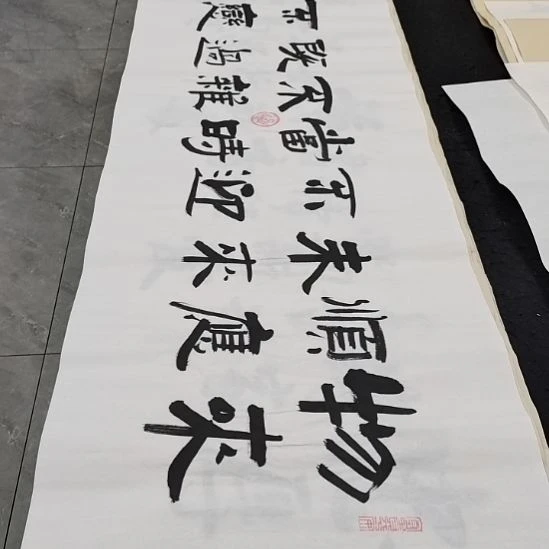 物來
順應
未來
不迎
當時
不雜
既過
不戀